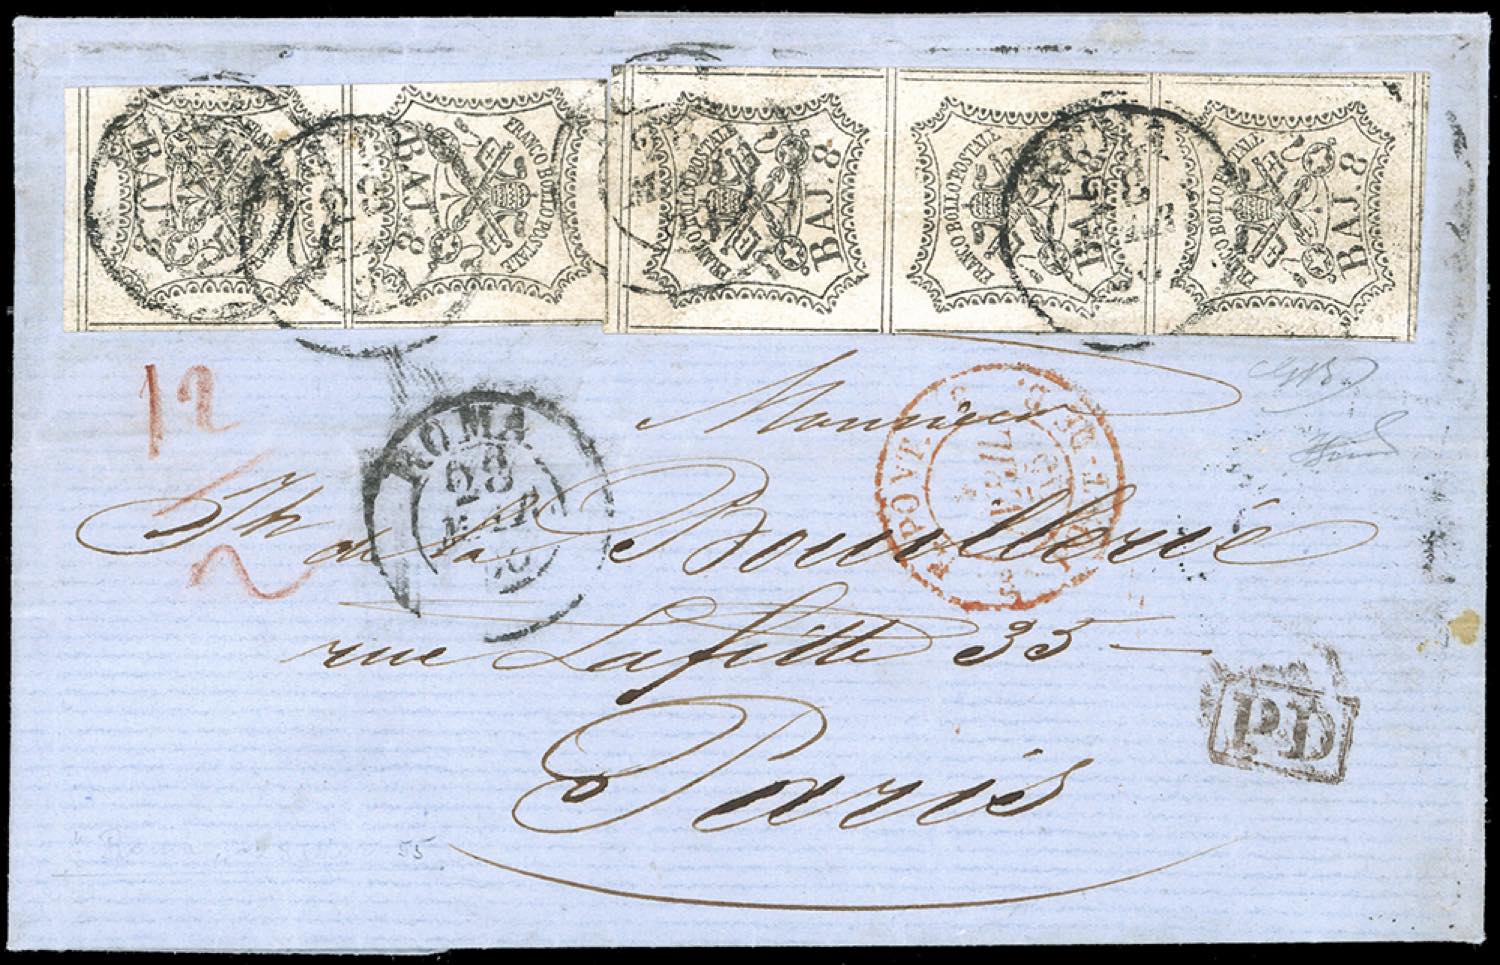 BAJ 8
FRANCO BOLLO POSTALE
BAJ 8
FRANCO BOLLO POSTALE
BAJ 8
FRANCO BOLLO POSTALE
BAJ 8
FRANCO BOLLO POSTALE
BAJ 8
12
2
ROMA
28
MAR
Monsieur
Jh de la Bouillerie
rue Lafitte 35
Paris
P.D
55